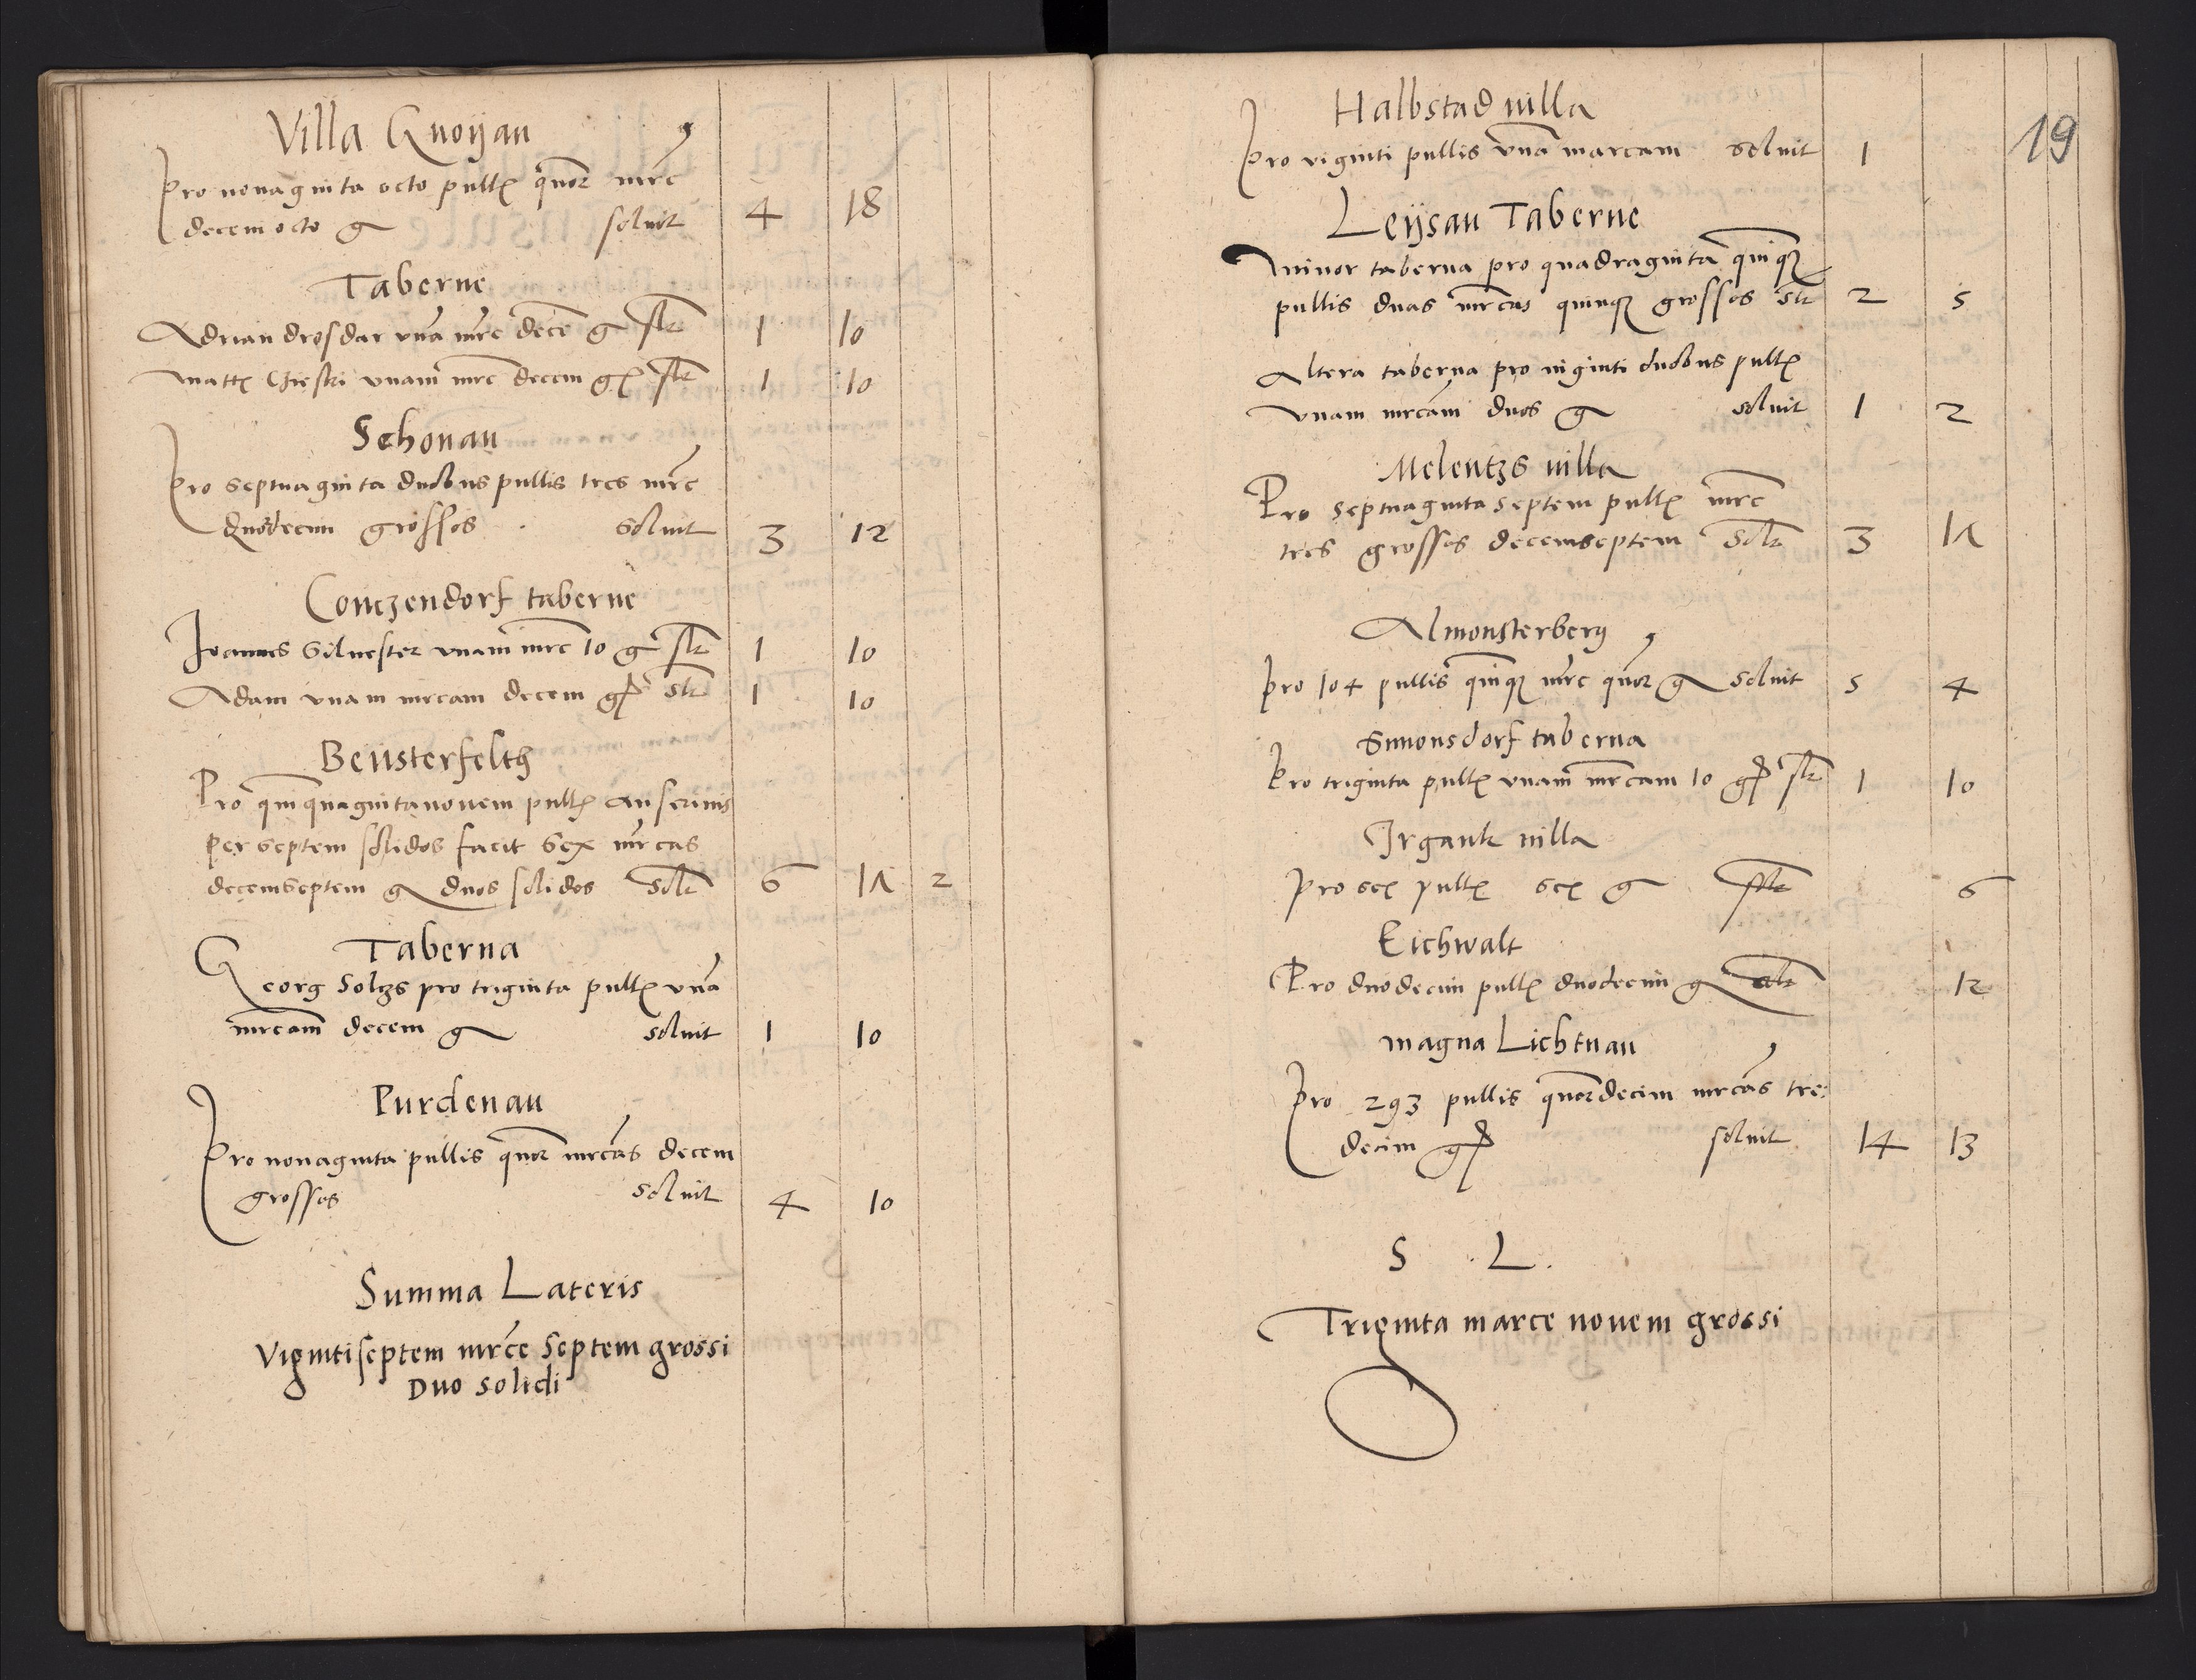 Villa Gnoyau
Pro nonaginta octo pull quor mrc
decem octo g soluit 4 18
Taberne
Adrian drosdar vna mrc dece g slt 1 10
Matt vnam mrc decem g slt 1 10
Schonau
Pro septuaginta duobus pullis tres mrc
duodecim grosses soluit 3 12
Comczendorf taberne
Joannes Siluester vnam mrc 10 g slt 1 10
Adam vnam mrcam decem g slt 1 10
Beijsterfelth
Pro quinquaginta nouem pull anserinis
per septem solidos facit sex mrcas
decemseptem g duos solidos solt 6 17 2
Taberna
Georg Soltzs pro triginta pull vna
mrcam decem g soluit 1 10
Purdenau
Pro nonaginta pullis quor mrcas decem
grosses soluit 4 10
Summa Lateris
Vigintiseptem mrce Septem grossi
Duo solidi
19
Halbstad uilla
Pro viginti pullis vna marcam soluit 1
Leijsau Taberne
Minor taberna pro quadraginta quinque
pullis duas mrcas quinque grosses slt 2 5
Altera taberna pro uiginti duobus pull
vnam mrcam duos g soluit 1 2
Melentzs uilla
Pro septuaginta septem pull mrc
tres grosses decemseptem solt 3 17
Almonsterberg
Pro 104 pullis quinque mrc quor g soluit 5 4
Simonsdorf taberna
Pro triginta pull vnam mrcam 10 g slt 1 10
Irgank uilla
Pro sex pull sex g slt 6
Eichwalt
Pro duodecim pull duodecim g slt 12
magna Lichtnau
Pro 293 pullis quordecim mrcas tre:
decim g soluit 14 13
S L.
Triginta marce nouem grossi